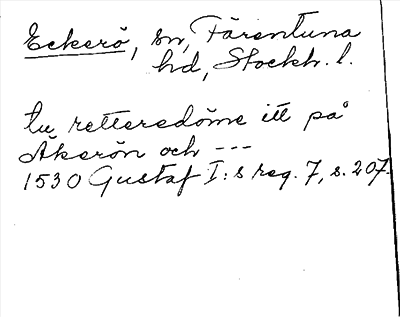 Eckerö, sn, Färentuna
hd, Stockh. l.
tu retteredöme itt på
Åkerön och ---
1530 Gustaf I:s reg. 7, s. 207.